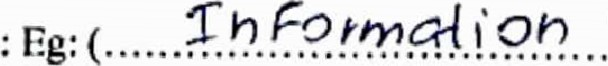 : Eg: (...... Information